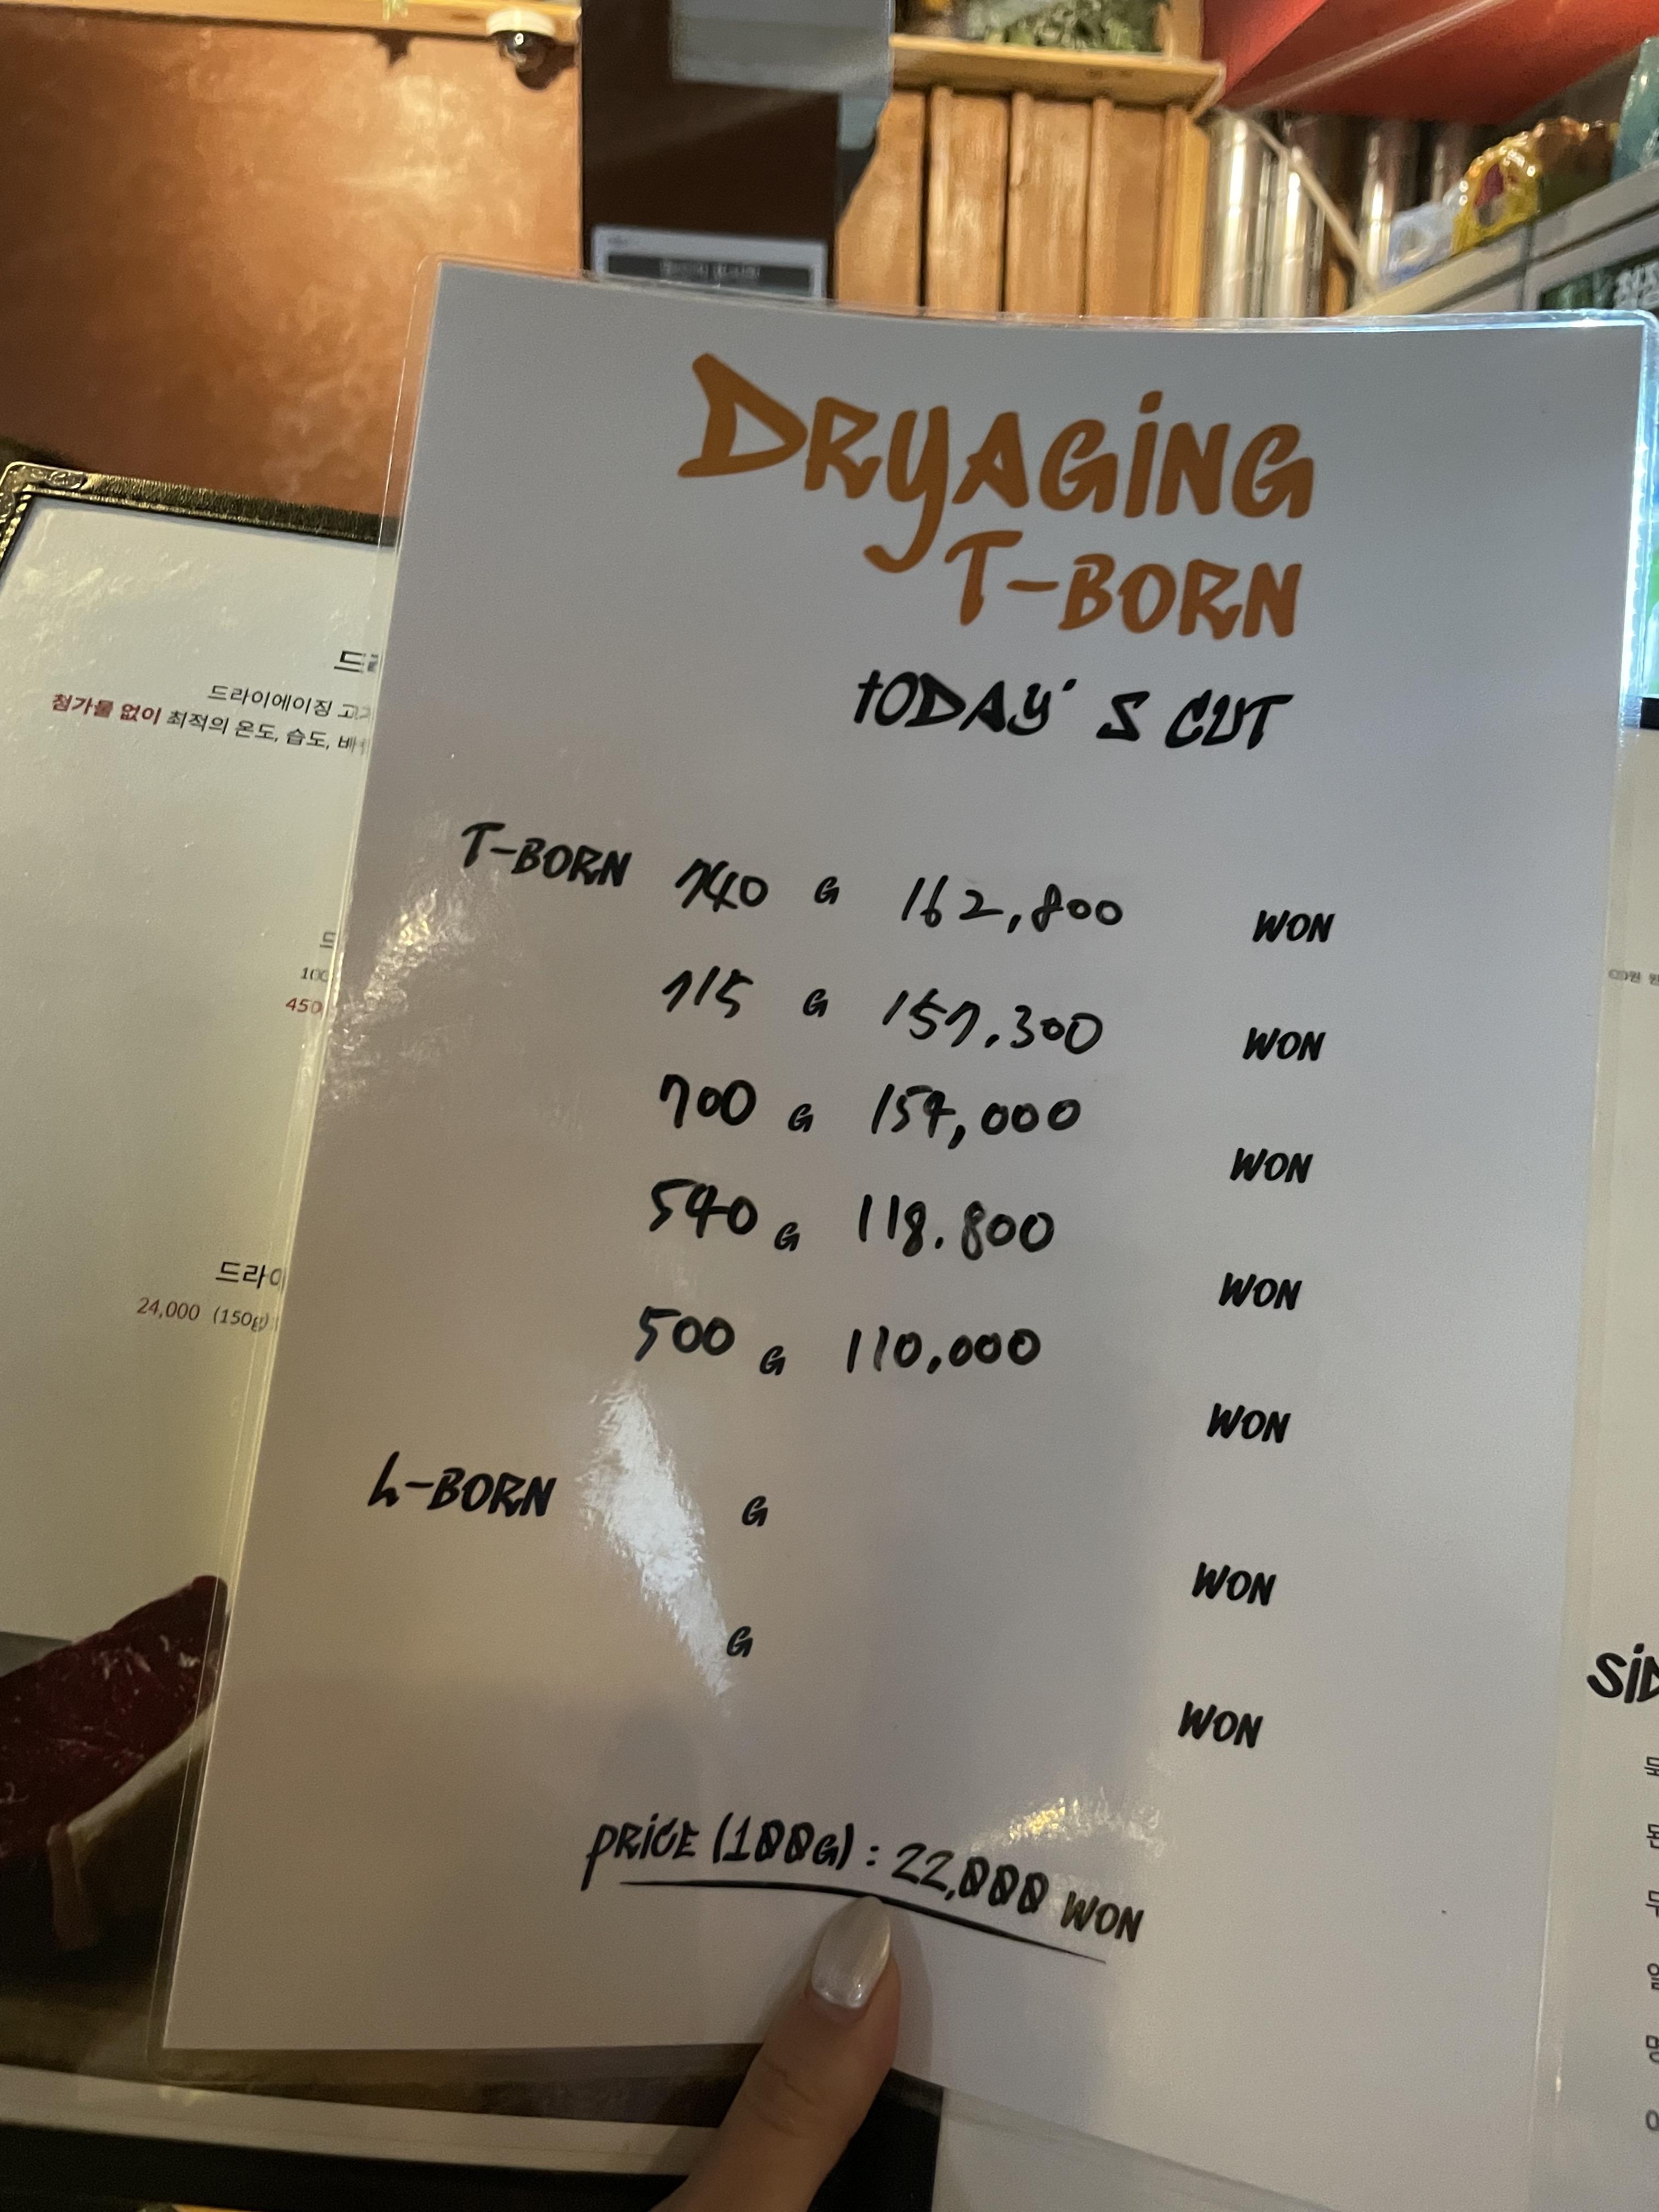 DRYAGING
T-BORN
TODAY'S CUT
T-BORN 740 G 162,800 WON
715 G 157.300 WON
700 G 154,000 WON
540 G 118.800 WON
500 G 110,000 WON
L-BORN G WON
G WON
PRICE (100G) : 22,000 WON
드라이에이징
첨가물 없이 최적의 온도, 습도,
450
24,000 (150g)